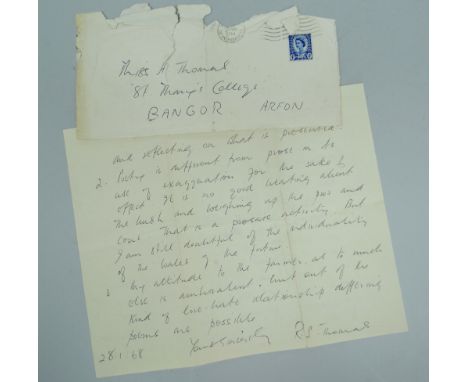 Miss A Thomas
St Mary's College
BANGOR ARFON
and reflecting on what is presented.
2. Poetry is different from prose in its
use of exaggeration for the sake of
effect. It is no good writing about
the Welsh and weighing up the pros and
cons; that is a prosaic activity. But
I am still doubtful of the individuality
of the Wales of the future
3 My attitude to the farmer as to much
else is ambivalent, but out of the
kind of love-hate relationship differing
poems are possible
Yours sincerely
28.1.68 R S Thomas